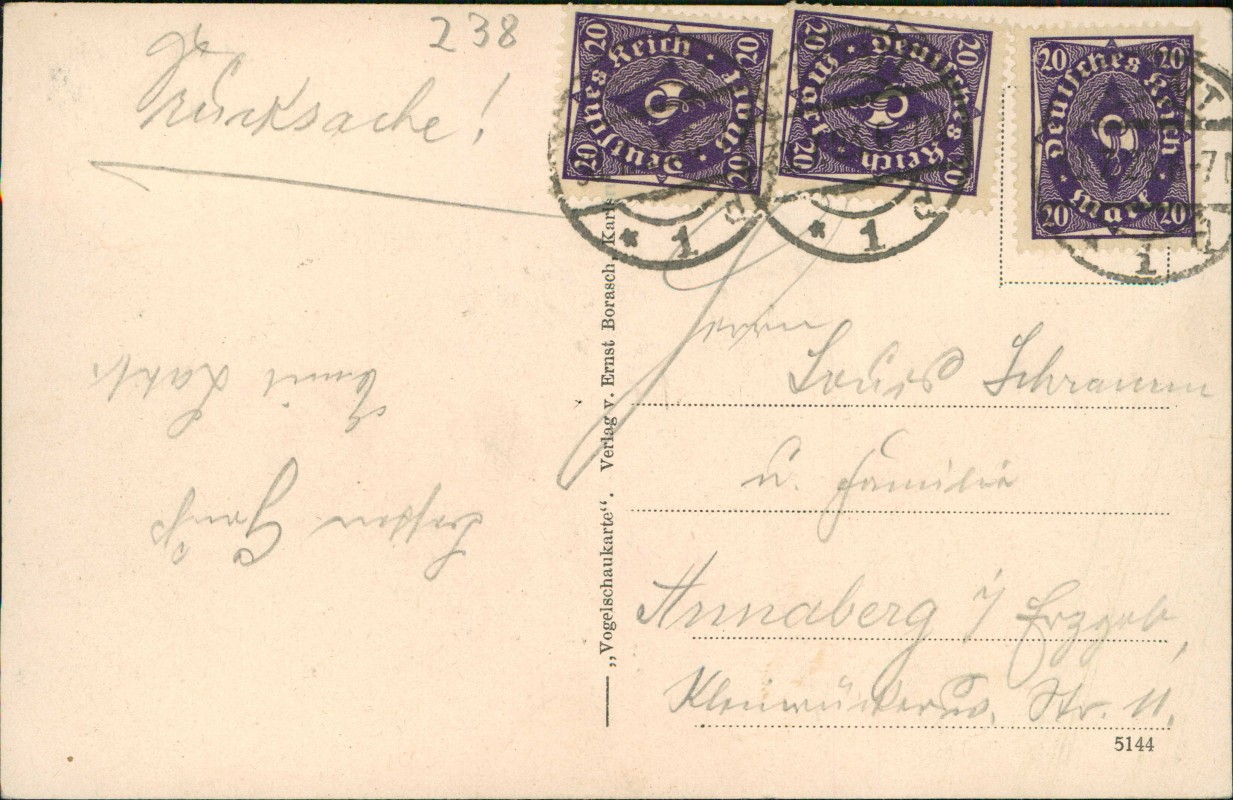 238
Drucksache!
20 Deutsches Reich 20
20 Mark 20
20 Deutsches Reich 20
20 Mark 20
20 Deutsches Reich 20
20 Mark 20
* 1
* 1
1
„Vogelschaukarte“. Verlag v. Ernst Borasch, Karls
Herrn
Louis Schramm
u. Familie
Annaberg i/ Erzgeb,
Str. 11,
5144
Gruß
Emil